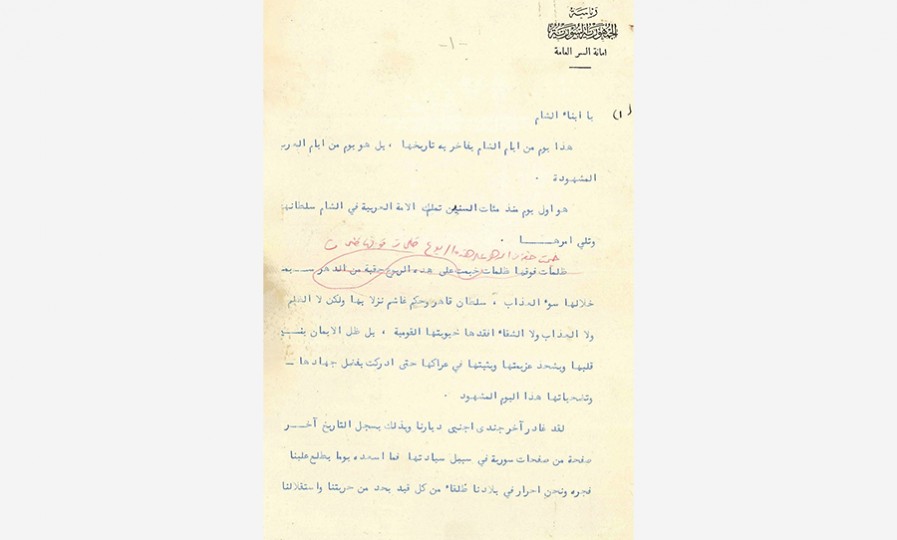 رئاسة
الجمهورية السورية
امانة السر العامة
- ١ -
(١)
يا ابناء الشام
هذا يوم من ايام الشام يفاخر به تاريخها ، بل هو يوم من ايام العرب
المشهودة .
هو اول يوم منذ مئات السنين تملك الامة العربية في الشام سلطانها
وتلي امرها .
ظلمات فوقها ظلمات خيمت على هذه الربوع حقبة من الدهر
خلالها سوء العذاب ، سلطان قاهر وحكم غاشم نزلا بها ولكن لا الظلم
ولا العذاب ولا الشقاء افقدها حيويتها القومية ، بل ظل الايمان
قلبها ويشحذ عزيمتها ويثبتها في عراكها حتى ادركت بفضل جهادها
وتضحياتها هذا اليوم المشهود .
لقد غادر آخر جندى اجنبي ديارنا وبذلك يسجل التاريخ آخر
صفحة من صفحات سورية في سبيل سيادتها فما اسعده يوما يطلع علينا
فجره ونحن احرار في بلادنا طلقاء من كل قيد يحد من حريتنا واستقلالنا